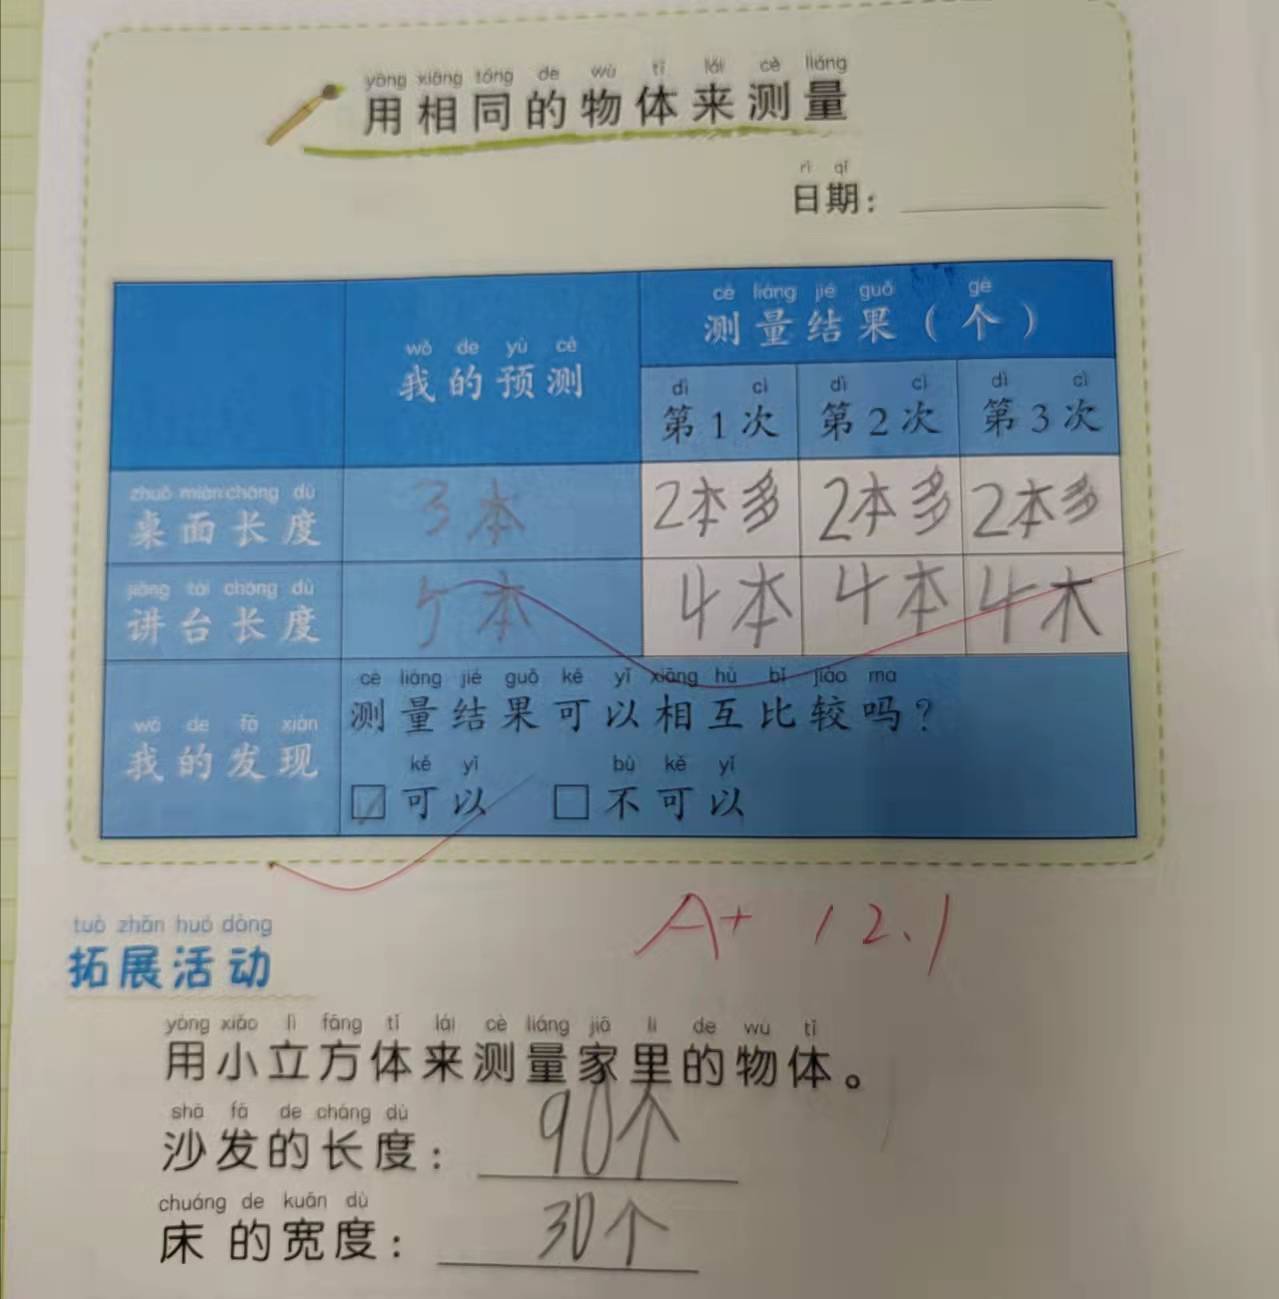 yòng xiāng tóng de wù tǐ lái cè liáng
用相同的物体来测量
rì qī
日期：
cè liáng jié guǒ gè
测量结果（个）
wǒ de yù cè
我的预测
dì cì dì cì dì cì
第1次 第2次 第3次
zhuō miàn cháng dù
桌面长度 3本 2本多 2本多 2本多
jiǎng tái cháng dù
讲台长度 5本 4本 4本 4木
cè liáng jié guǒ kě yǐ xiāng hù bǐ jiào ma
测量结果可以相互比较吗？
wǒ de fā xiàn
我的发现
kě yǐ bù kě yǐ
☑可以 □不可以
A+ 12.1
tuò zhǎn huó dòng
拓展活动
yòng xiǎo lì fāng tǐ lái cè liáng jiā li de wù tǐ
用小立方体来测量家里的物体。
shā fā de cháng dù
沙发的长度：90个
chuáng de kuān dù
床的宽度：30个